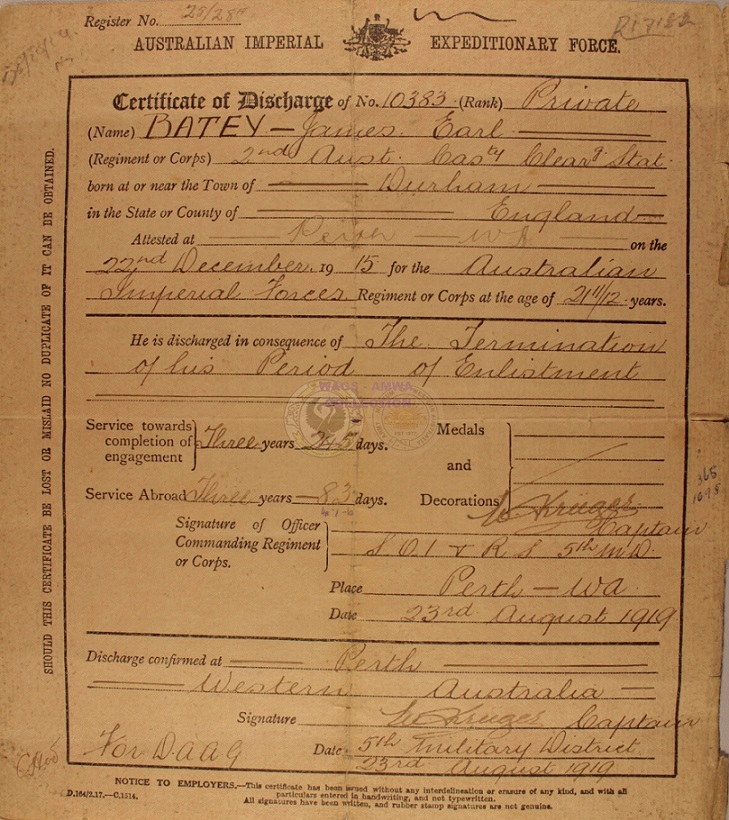 Register No. 25/28
R17182
AUSTRALIAN IMPERIAL EXPEDITIONARY FORCE.
Certificate of Discharge of No. 10383 (Rank) Private
(Name) BATEY - James Earl
(Regiment or Corps) 2nd Aust. Cas ty Clear g Stat.
born at or near the Town of Durham
in the State or County of England
Attested at Perth WA on the
22nd December 1915 for the Australian
Imperial Forces Regiment or Corps at the age of 21 11/12 years.
He is discharged in consequence of The Termination
of his Period of Enlistment
WAGS - AMWA
COLLECTION
Service towards completion of engagement Three years 245 days.
Medals and Decorations
Service Abroad Three years 83 days.
365
1095
Signature of Officer Commanding Regiment or Corps.
Kruger
Captain
S O I & R S 5th M.D.
Place Perth - WA
Date 23rd August 1919
Discharge confirmed at Perth
Western Australia
Signature Kruger Captain
For D.A.A.G
Date 5th Military District
23rd August 1919
NOTICE TO EMPLOYERS.—This certificate has been issued without any interdelineation or erasure of any kind, and with all
particulars entered in handwriting, and not typewritten.
All signatures have been written, and rubber stamp signatures are not genuine.
D.164/2.17.—C.1514.
SHOULD THIS CERTIFICATE BE LOST OR MISLAID NO DUPLICATE OF IT CAN BE OBTAINED.